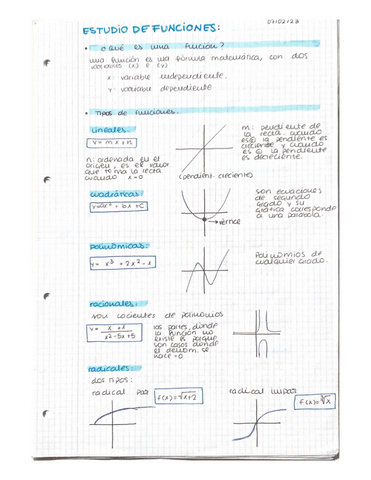 07/02/23
ESTUDIO DE FUNCIONES:
• ¿Qué es una función?
una función es una fórmula matemática, con dos
variables (x) e (y)
x: variable independiente.
y: variable dependiente
• Tipos de funciones.
Lineales:
y = mx + n
n: ordenada en el
origen, es el valor
que toma la recta
cuando x=0
(pendient. creciente)
m: pendiente de
la recta. cuando
es ⊕ la pendiente es
creciente y cuando
es ⊖ la pendiente
es decreciente.
cuadráticas:
y=ax² + bx + c
→ vértice
son ecuaciones
de segundo
grado y su
gráfica corresponde
a una parábola.
Polinómicas:
y = x³ + 2x² - x
Polinomios de
cualquier grado.
racionales:
son cocientes de polinomios
las partes, donde
la función no
existe es porque
son casos donde
el denom. se
hace = 0
radicales:
dos tipos:
radical par
f(x)=√x+2
radical impar
f(x)=∛x